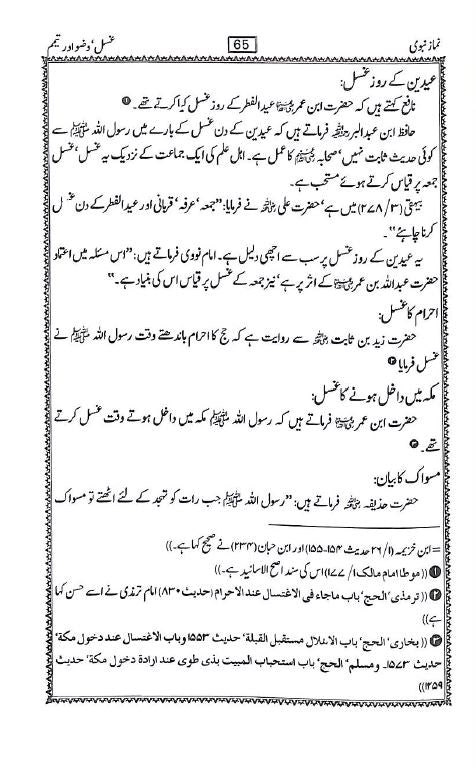 نماز نبوی
65
غسل، وضو اور تیمم
عیدین کے روز غسل:
نافع کہتے ہیں کہ حضرت ابن عمر رضی اللہ عنہما عید الفطر کے روز غسل کیا کرتے تھے۔ ❶
حافظ ابن عبد البر رحمہ اللہ فرماتے ہیں کہ عیدین کے دن غسل کے بارے میں رسول اللہ ﷺ سے
کوئی حدیث ثابت نہیں، صحابہ رضی اللہ عنہم کا عمل ہے۔ اہل علم کی ایک جماعت کے نزدیک یہ غسل، غسل
جمعہ پر قیاس کرتے ہوئے مستحب ہے۔
بیہقی (۳/ ۲۷۸) میں ہے، حضرت علی رضی اللہ عنہ نے فرمایا: "جمعہ، عرفہ، قربانی اور عید الفطر کے دن غسل
کرنا چاہئے"۔
یہ عیدین کے روز غسل پر سب سے اچھی دلیل ہے۔ امام نووی فرماتے ہیں: "اس مسئلہ میں اعتماد
حضرت عبداللہ بن عمر رضی اللہ عنہما کے اثر پر ہے، نیز جمعہ کے غسل پر قیاس اس کی بنیاد ہے۔"
احرام کا غسل:
حضرت زید بن ثابت رضی اللہ عنہ سے روایت ہے کہ حج کا احرام باندھتے وقت رسول اللہ ﷺ نے
غسل فرمایا ❷
مکہ میں داخل ہونے کا غسل:
حضرت ابن عمر رضی اللہ عنہما فرماتے ہیں کہ رسول اللہ ﷺ مکہ میں داخل ہوتے وقت غسل کرتے
تھے۔ ❸
مسواک کا بیان:
حضرت حذیفہ رضی اللہ عنہ فرماتے ہیں: "رسول اللہ ﷺ جب رات کو تہجد کے لئے اٹھتے تو مسواک
= ابن خزیمہ (۱/ ۲۶ حدیث ۱۵۴-۱۵۵) اور ابن حبان (۲۳۴) نے صحیح کہا ہے۔))
❶ ((موطا امام مالک ۱/ ۱۷۷) اس کی سند اصح الاسانید ہے۔))
❷ ((ترمذی، الحج، باب ماجاء فی الاغتسال عند الاحرام (حدیث ۸۳۰) امام ترمذی نے اسے حسن کہا
ہے))
❸ ((بخاری، الحج، باب الاهلال مستقبل القبلة، حدیث ۱۵۵۳ وباب الاغتسال عند دخول مكة،
حدیث ۱۵۷۳۔ ومسلم، الحج، باب استحباب المبيت بذی طوی عند ارادة دخول مكة، حدیث
۱۲۵۹))